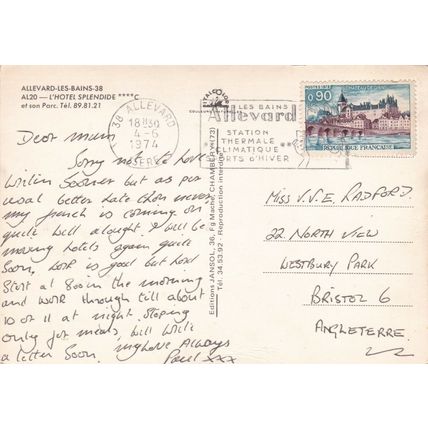 ALLEVARD-LES-BAINS-38
AL20 — L'HOTEL SPLENDIDE ****C
et son Parc. Tél. 89.81.21
38 ALLEVARD
18H30
4-6
1974
ISERE
LES BAINS
Allevard
STATION
THERMALE
CLIMATIQUE
SPORTS d'HIVER
0,90
CHATEAU DE GIEN
REPUBLIQUE FRANÇAISE
Dear mum
Sorry not to have
writen sooner but as per
usual better late than never
my french is coming on
quite well alought I will be
moving hotels again quite
soon, work is good but hard
Start at 8oo in the morning
and work through till about
10 or 11 at night stoping
only for meals, will write
a letter soon.
my love Always
Paul xxx
Editions JANSOL, 36, Fg Maché, CHAMBERY (73)
Tél. 34.53.92 - Reproduction interdite
MISS V.V.E. RADFORD.
22 NORTH VIEW
WESTBURY PARK
BRISTOL 6
ANGLETERRE.